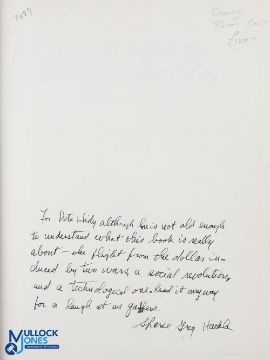 7487
£120-
For Pete Hidy although he is not old enough
to understand what this book is really
about – the flight from the dollar in-
duced by two wars, a social revolution,
and a technological one. Read it anyway
for a laugh at us gaffers.
Sparse Grey Hackle
MULLOCK
JONES